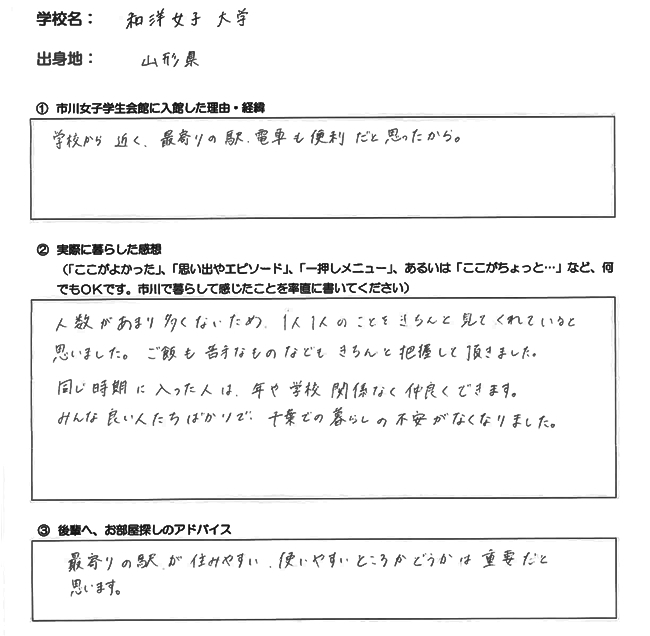 学校名： 和洋女子大学
出身地： 山形県
① 市川女子学生会館に入館した理由・経緯
学校から近く、最寄りの駅、電車も便利だと思ったから。
② 実際に暮らした感想
（「ここがよかった」、「思い出やエピソード」、「一押しメニュー」、あるいは「ここがちょっと…」など、何
でもOKです。市川で暮らして感じたことを率直に書いてください）
人数があまり多くないため、1人1人のことをきちんと見てくれていると
思いました。ご飯も苦手なものなどもきちんと把握して頂きました。
同じ時期に入った人は、年や学校関係なく仲良くできます。
みんな良い人たちばかりで、千葉での暮らしの不安がなくなりました。
③ 後輩へ、お部屋探しのアドバイス
最寄りの駅が住みやすい、使いやすいところかどうかは重要だと
思います。